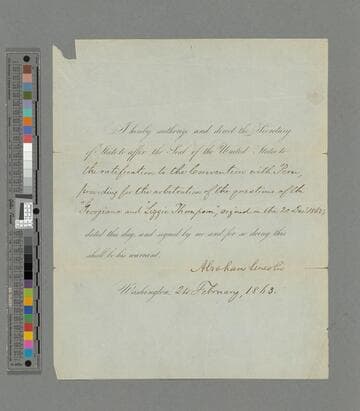 I hereby authorize and direct the Secretary
of State to affix the Seal of the United States to
the ratification to the Convention with Peru,
providing for the arbitration of the questions of the
"Georgiana and Lizzie Thompson, signed on the 20 Dec. 1862;
dated this day, and signed by me and for so doing this
shall be his warrant.
Abraham Lincoln
Washington 24 February, 1863.